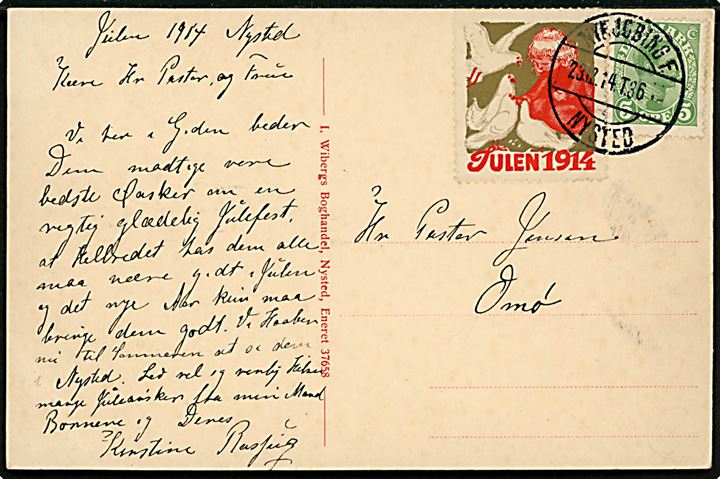 Julen 1914 Nysted
Kære Hr Pastor, og Frue
Vi her i Gden beder
Dem modtage vore
bedste Ønsker om en
rigtig glædelig Julefest,
at Helbredet hos dem alle
maa være godt i Julen
og det nye Aar kun maa
bringe dem godt. Vi Haaber
nu til Sommeren at se dem
i Nysted. Lev vel og venlig Hilsen
mange Juleønsker fra min Mand
Børnene og Deres
Kirstine
I. Wibergs Boghandel, Nysted, Eneret 37658
JULEN 1914
DANMARK
5 5
NYKJØBING F.
23.12.14 T.36
NYSTED
Hr Pastor Jensen
Omø